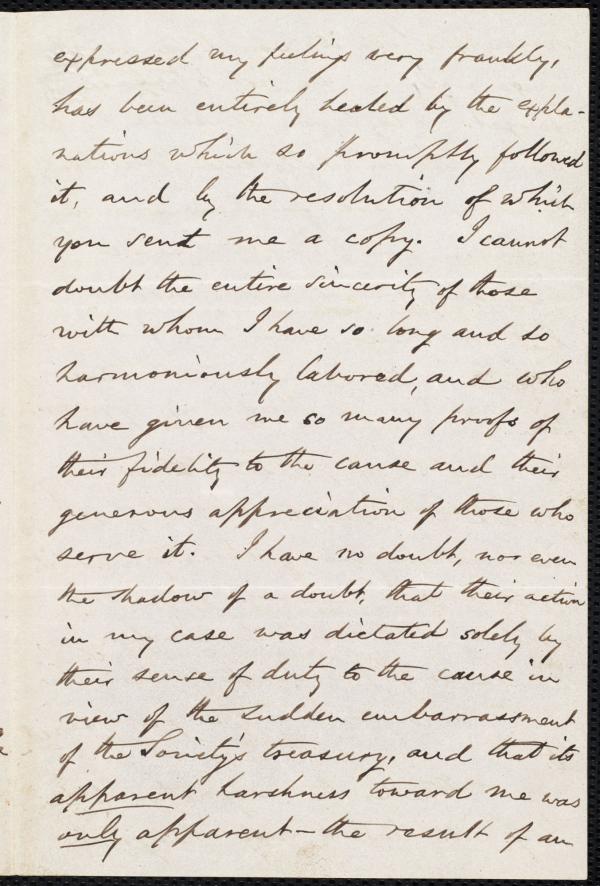 expressed my feelings very frankly,
has been entirely healed by the expla-
nations which so promptly followed
it, and by the resolution of which
you sent me a copy. I cannot
doubt the entire sincerity of those
with whom I have so long and so
harmoniously labored, and who
have given me so many proofs of
their fidelity to the cause and their
generous appreciation of those who
serve it. I have no doubt, nor even
the shadow of a doubt, that their action
in my case was dictated solely by
their sense of duty to the cause in
view of the sudden embarrassment
of the Society's treasury, and that its
apparent harshness toward me was
only apparent—the result of an